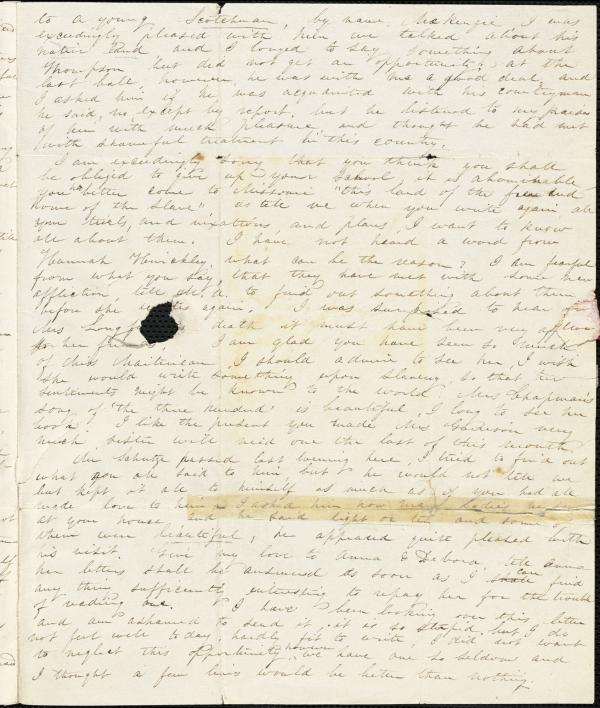 to a young Scotchman, by name, McKenzie, I was
exceedingly pleased with him, we talked about his
native land and I longed to say something about
Thompson, but did not get an opportunity; at the
last ball, however, he was with me a good deal, and
I asked him if he was acquainted with his countryman
he said, no, except by report, but he listened to my praises
of him with much pleasure, and thought he had met
with shameful treatment in this country.
I am exceedingly sorry that you think you shall
be obliged to give up your school, it is abominable
you better come to Missouri "this land of the free and
home of the slave" tell me when you write again all
your trials, and vexations, and plans, I want to know
all about them. I have not heard a word from
Hannah Hinckley, what can be the reason? I am fearful
from what you say, that they have met with some new
affliction, tell M. A. to find out something about them
before she writes again. I was surprised to hear of
Mrs death it must have been very
for her I am glad you have seen so much
of this Maitinean, I should admire to see her, I wish
she would write something upon slavery, so that her
sentiments might be known to the world. Mrs Chapman's
song of 'the three hundred' is beautiful, I long to see her
book. I like the present you made Mrs very
much, sister will need one the last of this month
Mr Schutze passed last evening here, I tried to find out
what you all said to him but he would not tell me
but kept it all to himself as much as if you had all
made love to him I asked him how many ladies
at your house, and he said eight or ten and some of
them were beautiful, he appeared quite pleased with
his visit. Give my love to Anna & Debora, tell Anna
her letters shall be answered as soon as I can find
any thing sufficiently interesting to repay her for the trouble
of reading me. I have been looking over this letter
and am ashamed to send it, it is so stupid, but I do
not feel well to day, hardly fit to write, I did not want
to neglect this opportunity however we have one so seldom and
I thought a few lines would be better than nothing.